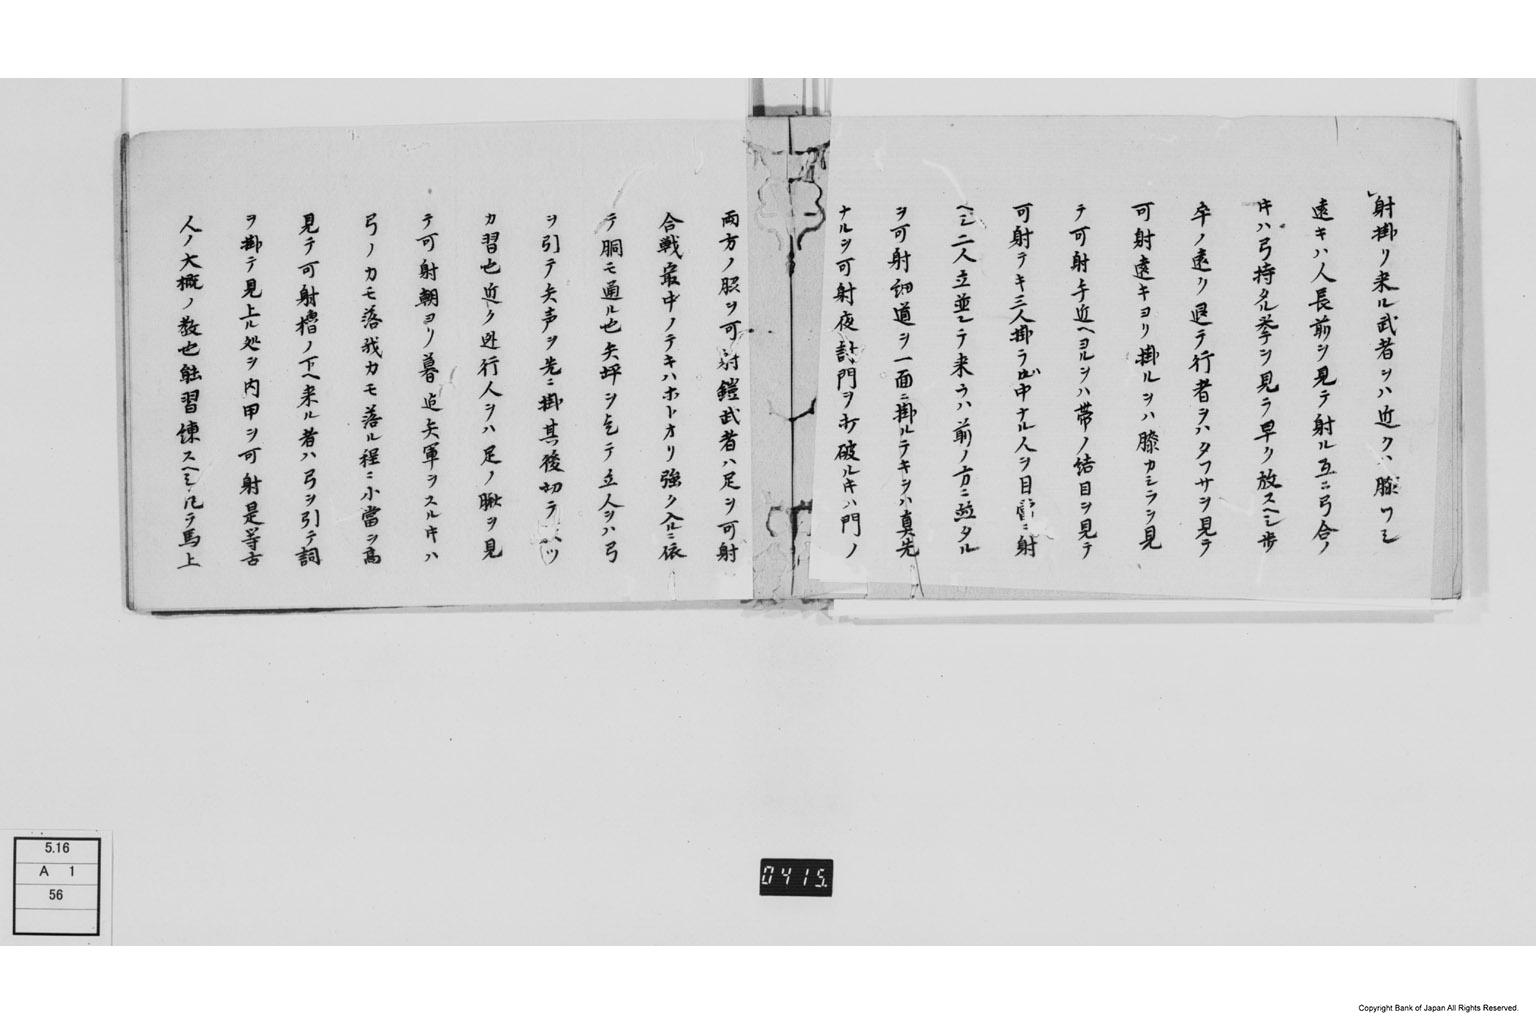 射掛リ来ル武者ヲハ近クハ膝ワシ
遠キハ人長前ヲ見テ射ル互ニ弓合ノ
片ハ弓持タル拳ヲ見ラ早リ放スヘシ歩
卒ノ遠リ退テ行者ヲハタフサヲ見テ
可射遠キヨリ掛ルヲハ膝カシラヲ見
テ可射手近ヘヨルヲハ帯ノ結目ヲ見テ
可射テキ三人掛ラハ中ナル人ヲ目當ニ射
ヘシ二人立並ヒテ来ラハ前ノ方ニ立タル
ヲ可射細道ヲ一面ニ掛ルテキヲハ真先
ナルヲ可射夜討門ヲ打破ル片ハ門ノ
両方ノ脇ヲ可射鎧武者ハ足ヲ可射
合戦最中ノテキハホトオリ強ク入ルニ依
テ胴モ通ル也矢坪ヲ乞テ立人ヲハ弓
ヲ引テ矢声ヲ先ニ掛其後切テハツ
カ習也近ク迯行人ヲハ足ノ腋ヲ見
テ可射朝ヨリ暮迠矢軍ヲスル片ハ
弓ノカモ落我カモ落ル程ニ小當ヲ高
見テ可射櫓ノ下ヘ来ル者ハ弓ヲ引テ詞
ヲ掛テ見上ル処ヲ内甲ヲ可射是等古
人ノ大概ノ教也能習煉スヘシ凡テ馬上
5.16
A 1
56
0415.
Copyright Bank of Japan All Rights Reserved.